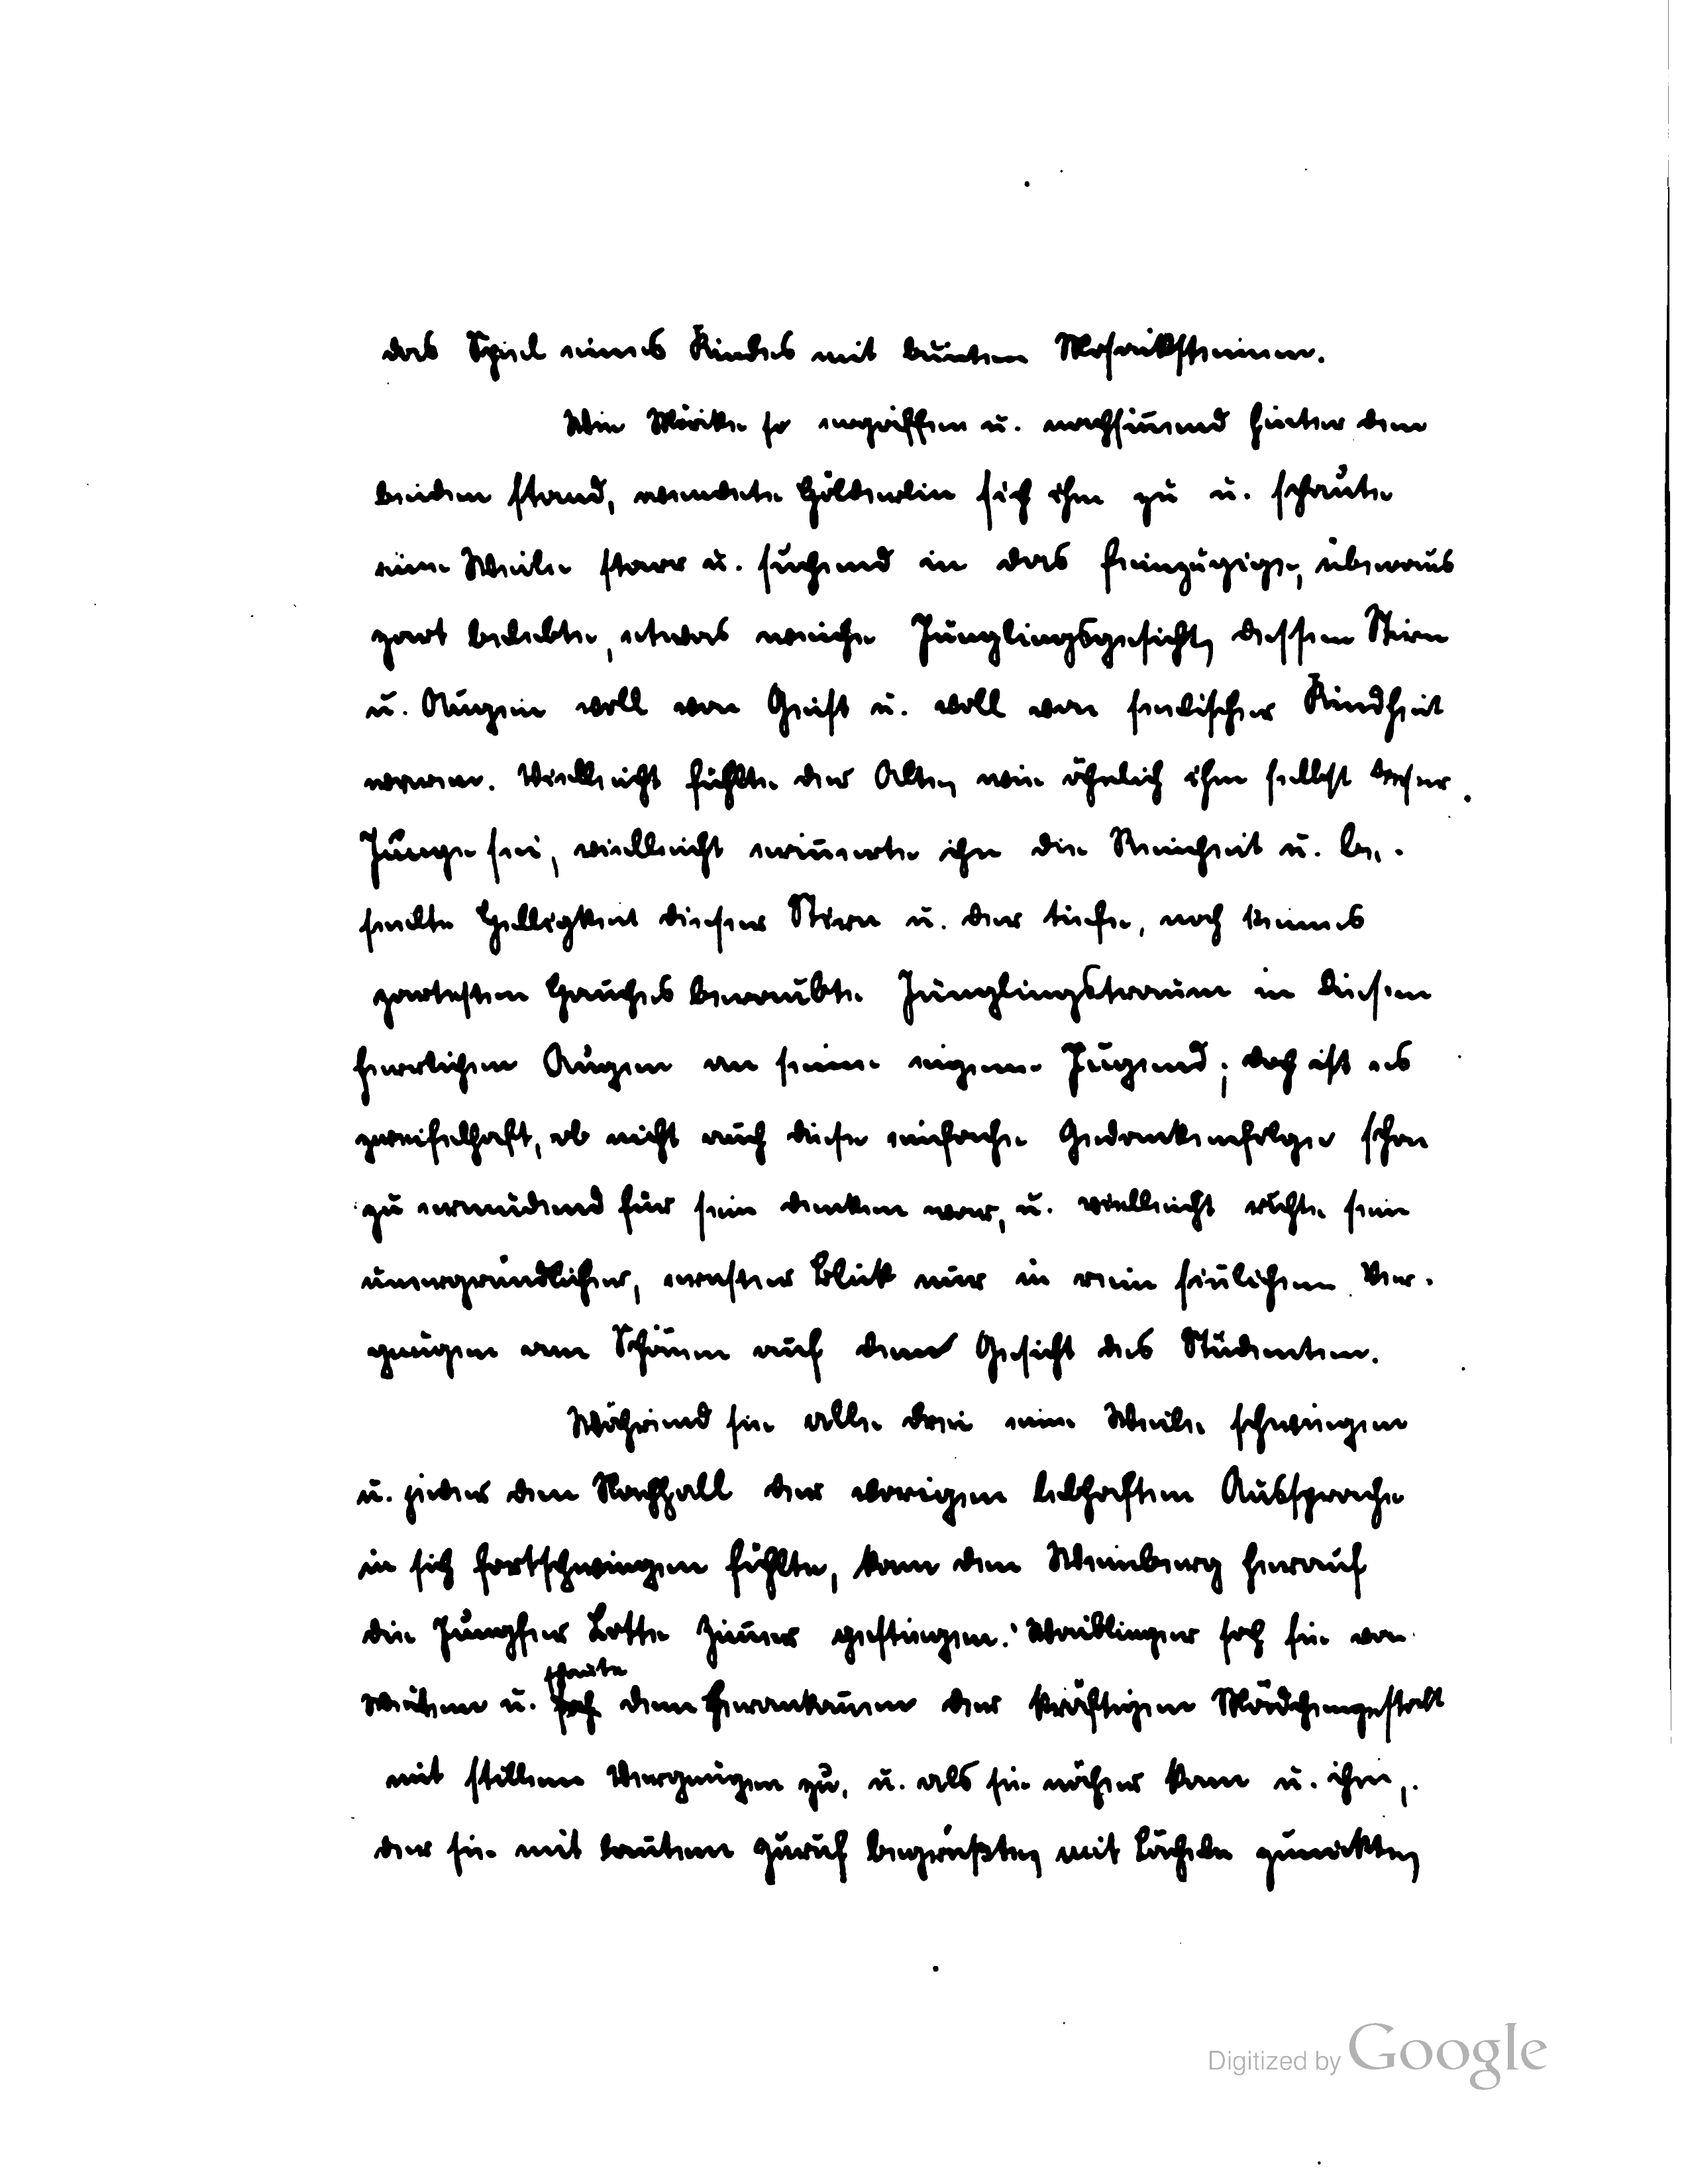 das Spiel eines Kindes mit bunten Mosaiksteinen.
Wie Mörike so ergriffen u. nachsinnend hinter den
beiden stand, wendete Hölderlin sich ihm zu u. schaute
eine Weile starr u. suchend in das feinzügige, überaus
zart belebte, etwas weiche Jünglingsgesicht, dessen Stirn
u. Augen voll von Geist u. voll von seelischer Kindheit
waren. Vielleicht fühlte der Alte, wie ähnlich ihm selbst dieser
Junge sei, vielleicht erinnerte ihn die Reinheit u. be-
seelte Helligkeit dieser Stirn u. der tiefe, noch keines
zartesten Hauches beraubte Jünglingstraum in diesen
herrlichen Augen an seine eigene Jugend; doch ist es
zweifelhaft, ob nicht auch diese einfache Gedankenfolge schon
zu ermüdend für sein denken war, u. vielleicht ruhte sein
unergründlicher, ernster Blick nur in rein sinnlichem Ver-
gnügen am Schönen auf dem Gesicht des Studenten.
Während sie alle drei eine Weile schwiegen
u. jeder den Nachhall der vorigen lebhaften Aussprache
in sich fortschwingen fühlte, kam den Weinberg herauf
die Jungfer Lotte Zimmer gestiegen. Waiblinger sah sie von
schaute
Weitem u. sah dem Herankommen der kräftigen Mädchengestalt
mit stillem Vergnügen zu, u. als sie näher kam u. ihm,
der sie mit lautem Zuruf begrüßte, mit Lächeln zunickte,
Digitized by Google